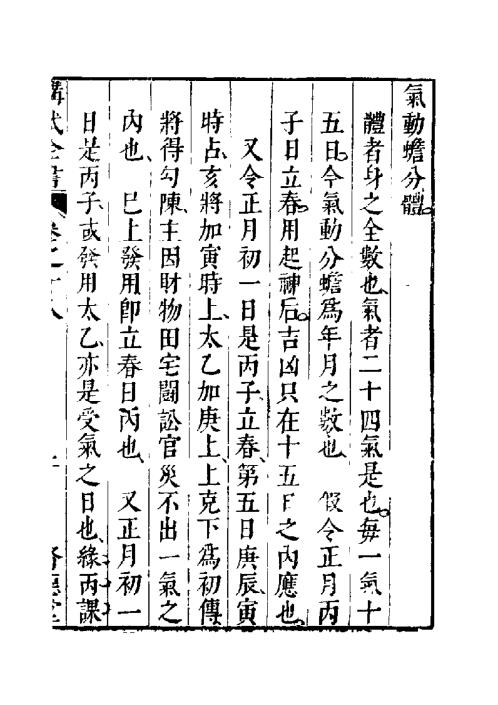 氣動蟾分體
體者身之全數也氣者二十四氣是也每一氣十
五日今氣動分蟾爲年月之數也　假令正月丙
子日立春用起神后吉凶只在十五日之内應也
又令正月初一日是丙子立春第五日庚辰寅
時占亥將加寅時上太乙加庚上上克下爲初傳
將得勾陳主因財物田宅鬭訟官災不出一氣之
內也　巳上發用卽立春日丙也　又正月初一
日是丙子或發用太乙亦是受氣之日也緣丙課
武全書　卷之十八